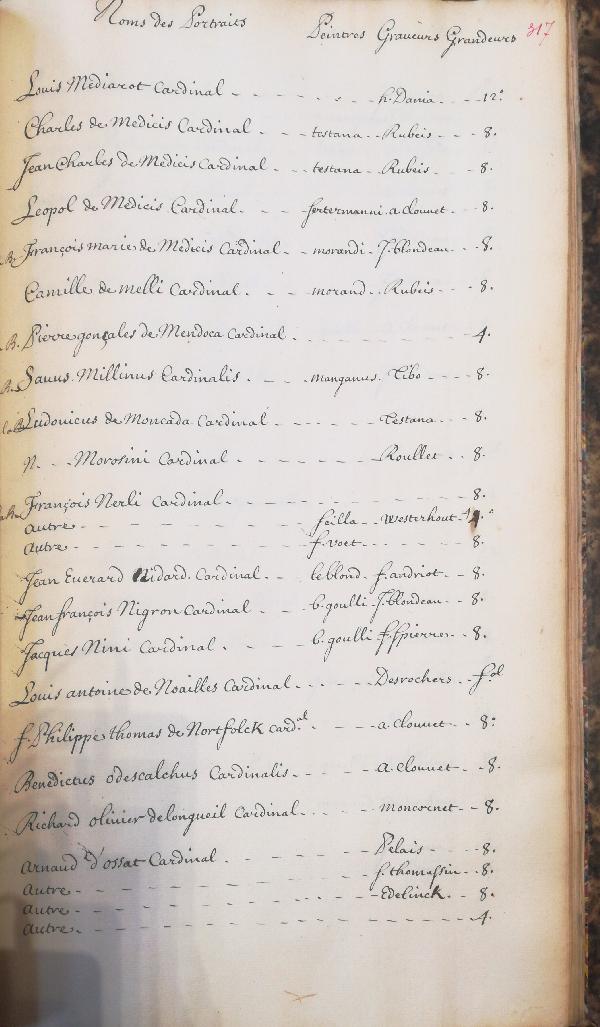 Noms des Portraits Peintres Graveurs Grandeurs 317
Louis Mediarot Cardinal - - - - - - h. Dania - - - 12°
Charles de Medicis Cardinal - - - testana - - Rubeis - - - 8.
Jean Charles de Medicis Cardinal - - - testana - Rubeis - - - 8.
Leopol de Medicis Cardinal - - - fertermanni. a. Clouuet - - 8.
R. François marie de Medicis Cardinal - - morandi - J. blondeau - - 8.
Camille de melli Cardinal - - - morand - - Rubeis - - 8.
R. Pierre gonçales de Mendoca Cardinal - - - - - - 4.
R. Sauus Millinus Cardinalis - - - manganus. Tibo - - - 8.
Ludovicus de Moncada Cardinal - - - - - Testana - - - 8.
N. - - Morosini Cardinal - - - - - - Roullet - - 8.
R. François Nerli Cardinal - - - - - - - - 8.
autre - - - - - - feilla - - Westerhout - 4°
autre - - - - - - f. voet - - - - - 8.
Jean Euerard Nidard Cardinal - - leblond. f. andriot - - 8.
Jean françois Nigron Cardinal - - b. goulli. J. blondeau - - 8.
Jacques Nini Cardinal - - - - b. goulli f. spierre - - 8.
Louis antoine de Noailles Cardinal - - - - - Desrochers - - fol
f. Philippe thomas de Nortfolck card.al - - - - a. Clouuet - - 8°
Benedictus odescalchus Cardinalis - - - - - a. Clouuet - - 8.
Richard oliuier delongueil Cardinal - - - - - moncornet - - 8.
Arnaud d'ossat Cardinal - - - - - Pelais - - - 8.
autre - - - - - - - - f. thomassin - - 8.
autre - - - - - - - - Edelinck - - 8.
autre - - - - - - - - - - - 4.